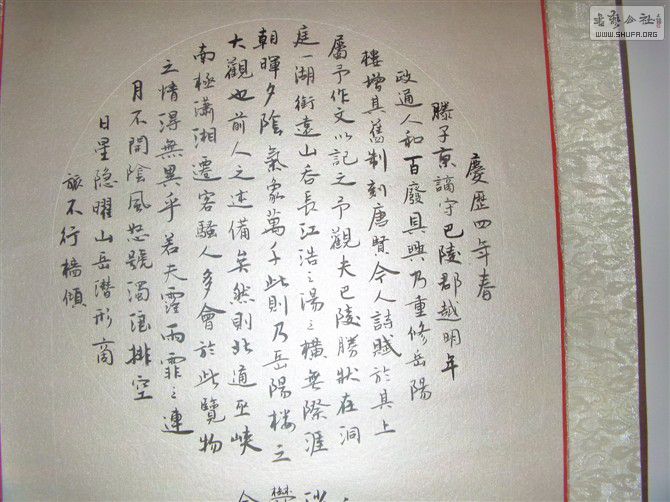 慶歷四年春
滕子京謫守巴陵郡越明年
政通人和百廢具興乃重修岳陽
樓增其舊制刻唐賢今人詩賦於其上
屬予作文以記之予觀夫巴陵勝狀在洞
庭一湖銜遠山吞長江浩〻湯〻橫無際涯
朝暉夕陰氣象萬千此則乃岳陽楼之
大觀也前人之述備矣然則北通巫峽
南極瀟湘遷客騷人多會於此覽物
之情得無異乎若夫霪雨霏〻連
月不開陰風怒號濁浪排空
日星隐曜山岳潛形商
旅不行檣傾
书艺公社
WWW.SHUFA.ORG